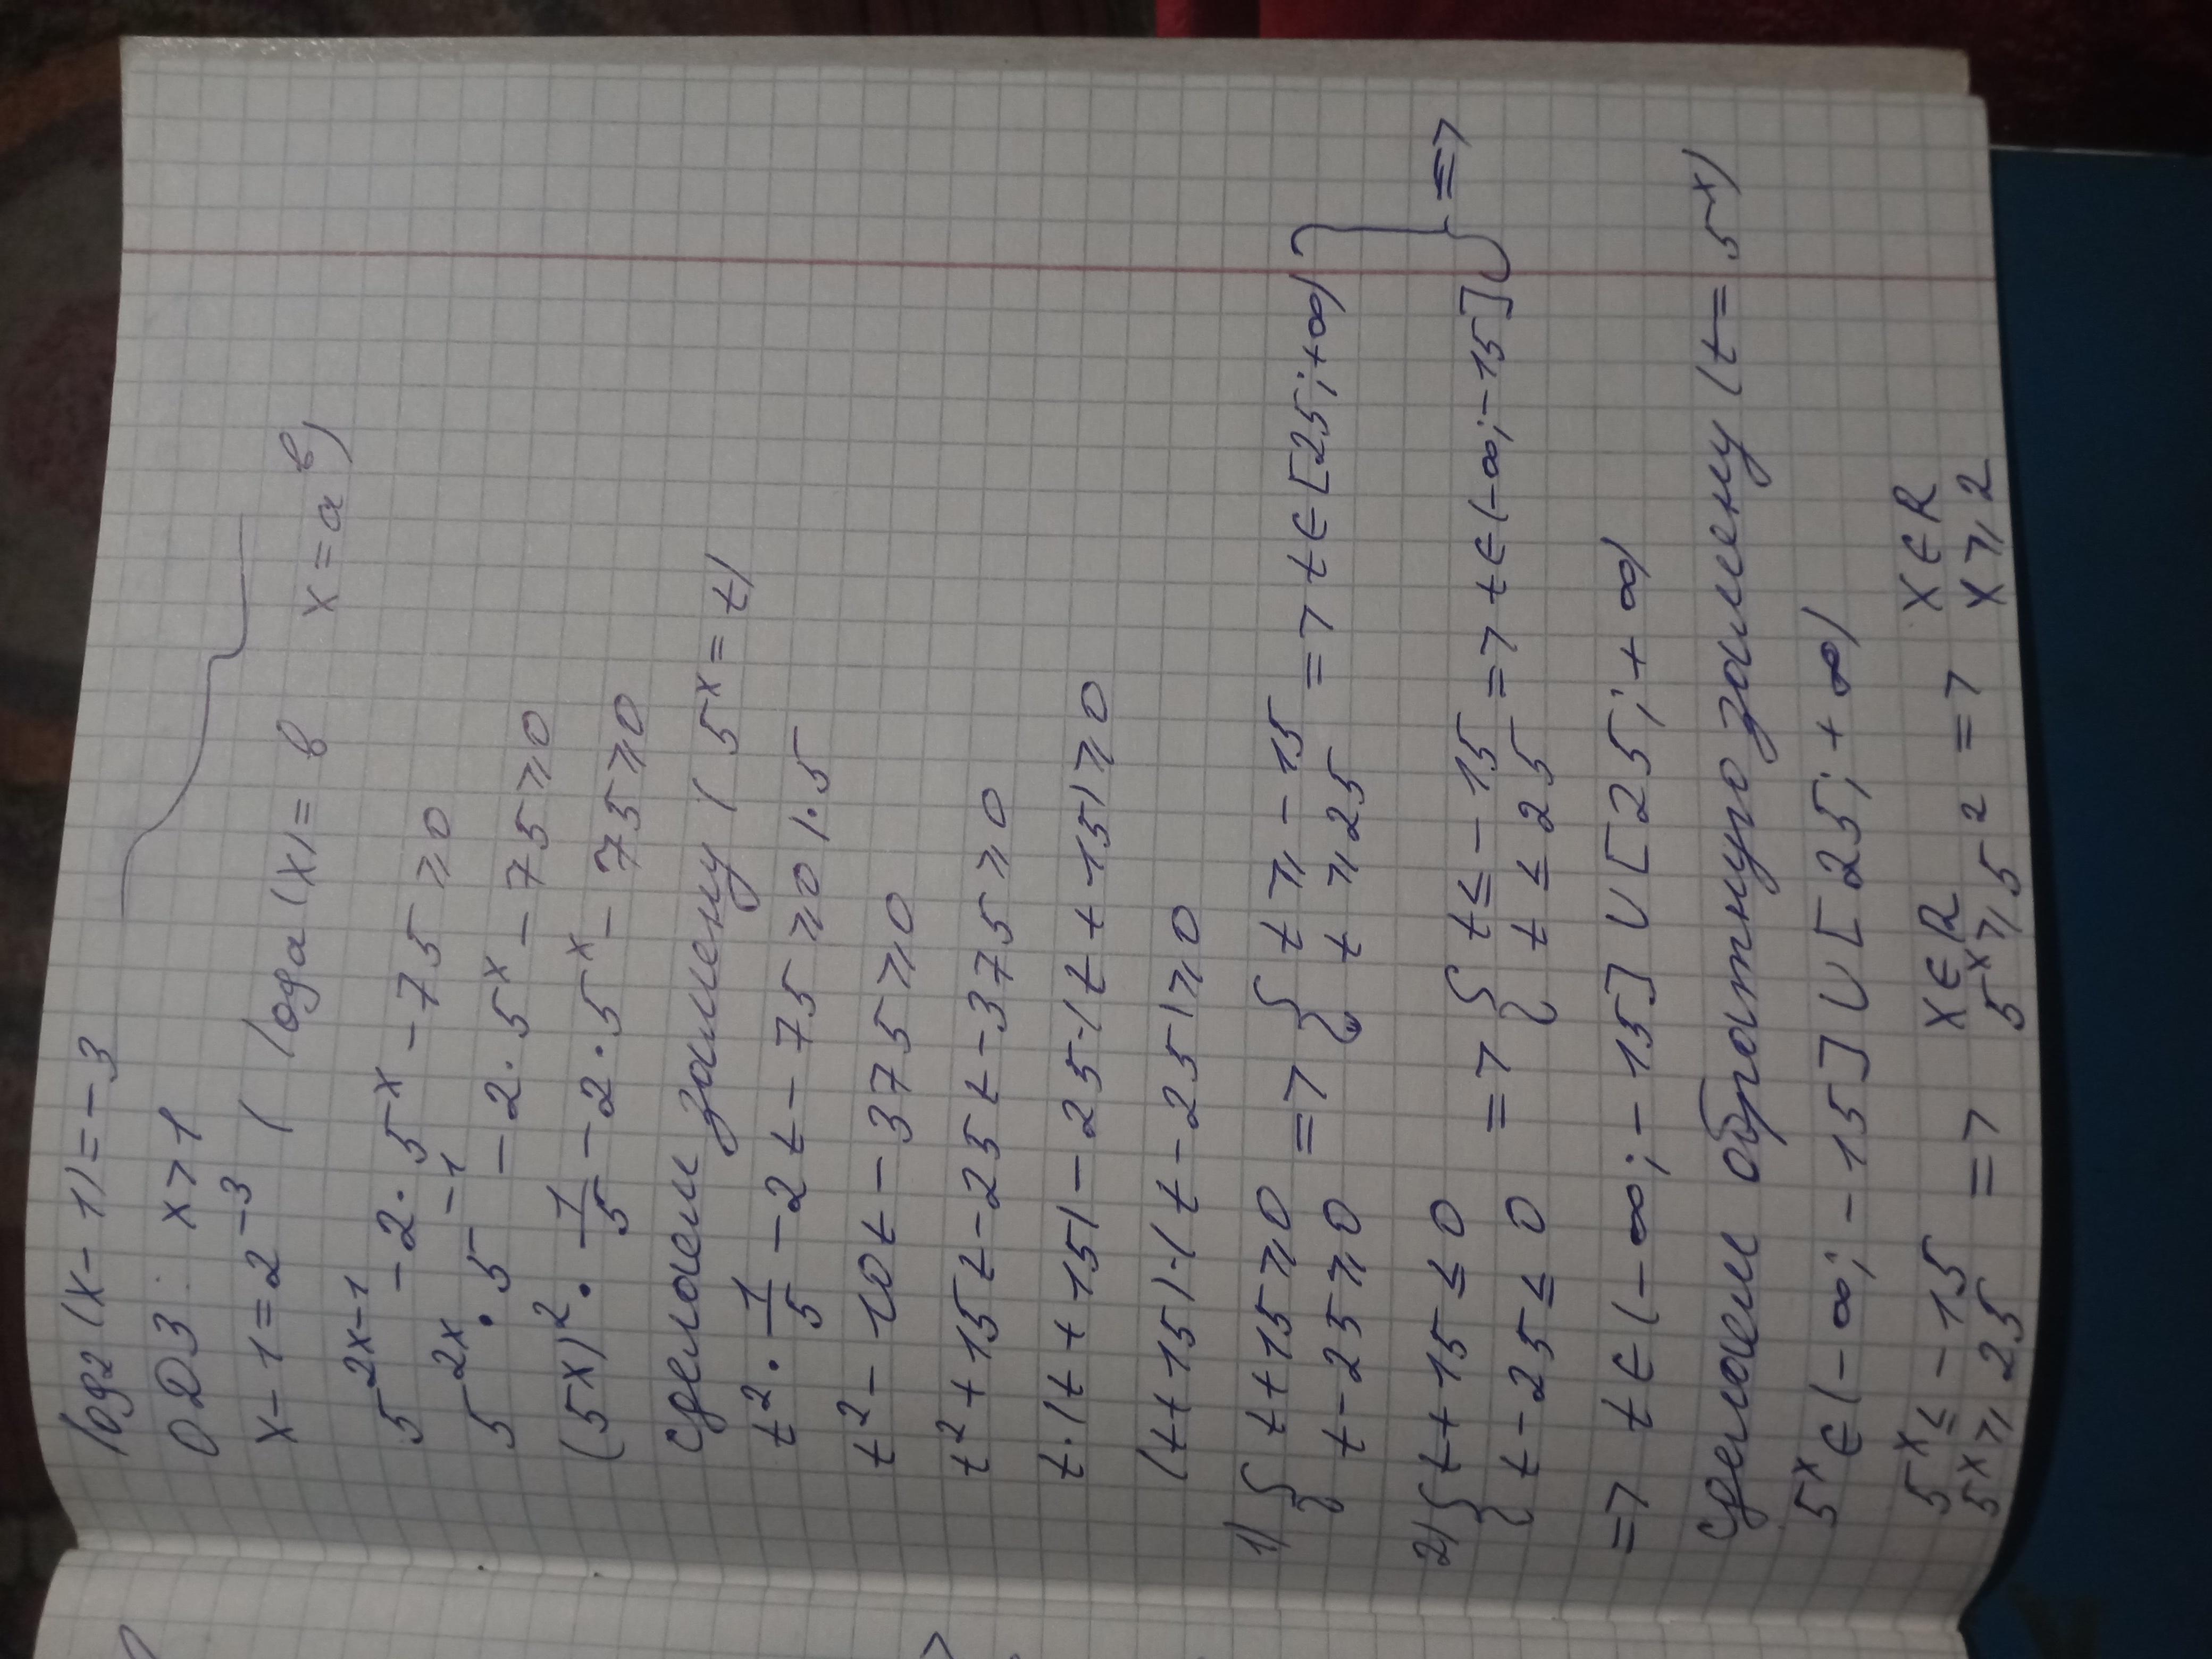 log₂(x-1)=-3
ОДЗ: x>1
x-1=2⁻³ ( logₐ(x)=в x=aᵇ)
5²ˣ⁻¹-2·5ˣ-75⩾0
5²ˣ·5⁻¹-2·5ˣ-75⩾0
(5ˣ)²·1/5-2·5ˣ-75⩾0
сделаем замену (5ˣ=t)
t²·1/5-2t-75⩾0 |·5
t²-10t-375⩾0
t²+15t-25t-375⩾0
t·(t+15)-25·(t+15)⩾0
(t+15)·(t-25)⩾0
1) { t+15⩾0 => { t⩾-15 => t∈[25;+∞) } =>
t-25⩾0 t⩾25
2) { t+15≤0 => { t≤-15 => t∈(-∞;-15]
t-25≤0 t≤25
=> t∈(-∞;-15]∪[25;+∞)
сделаем обратную замену (t=5ˣ)
5ˣ∈(-∞;-15]∪[25;+∞)
5ˣ≤-15 => x∈R => x∈R
5ˣ⩾25 5ˣ⩾5² x⩾2